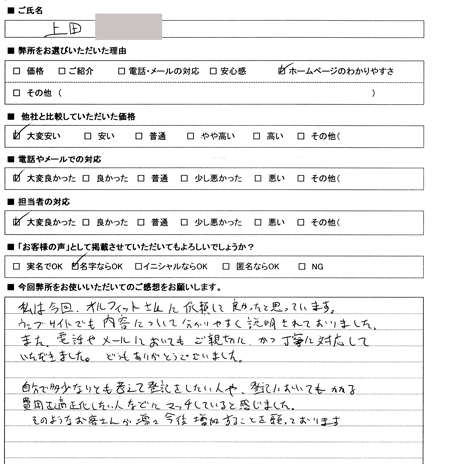 ■ ご氏名
上田
■ 弊所をお選びいただいた理由
□ 価格 □ご紹介 □電話・メールの対応 □安心感 ☑ホームページのわかりやすさ
□ その他 ( )
■ 他社と比較していただいた価格
☑大変安い □ 安い □ 普通 □ やや高い □ 高い □ その他(
■ 電話やメールでの対応
☑大変良かった □ 良かった □ 普通 □ 少し悪かった □ 悪い □ その他(
■ 担当者の対応
☑大変良かった □ 良かった □ 普通 □ 少し悪かった □ 悪い □ その他(
■「お客様の声」として掲載させていただいてもよろしいでしょうか?
□ 実名でOK ☑名字ならOK □イニシャルならOK □ 匿名ならOK □ NG
■ 今回弊所をお使いいただいてのご感想をお願いします。
私は今回、オルフィットさんに依頼して良かったと思っています。
ウェブサイトでも内容について分かりやすく説明されておりました、
また、電話やメールにおいてもご親切に、かつ丁寧に対応して
いただきました。どうもありがとうございました。
自分で多少なりとも考えて登記をしたい人や、登記においてもかかる
費用を適正化したい人などにマッチしていると感じました。
そのようなお客さんが 今後増加することを願っております